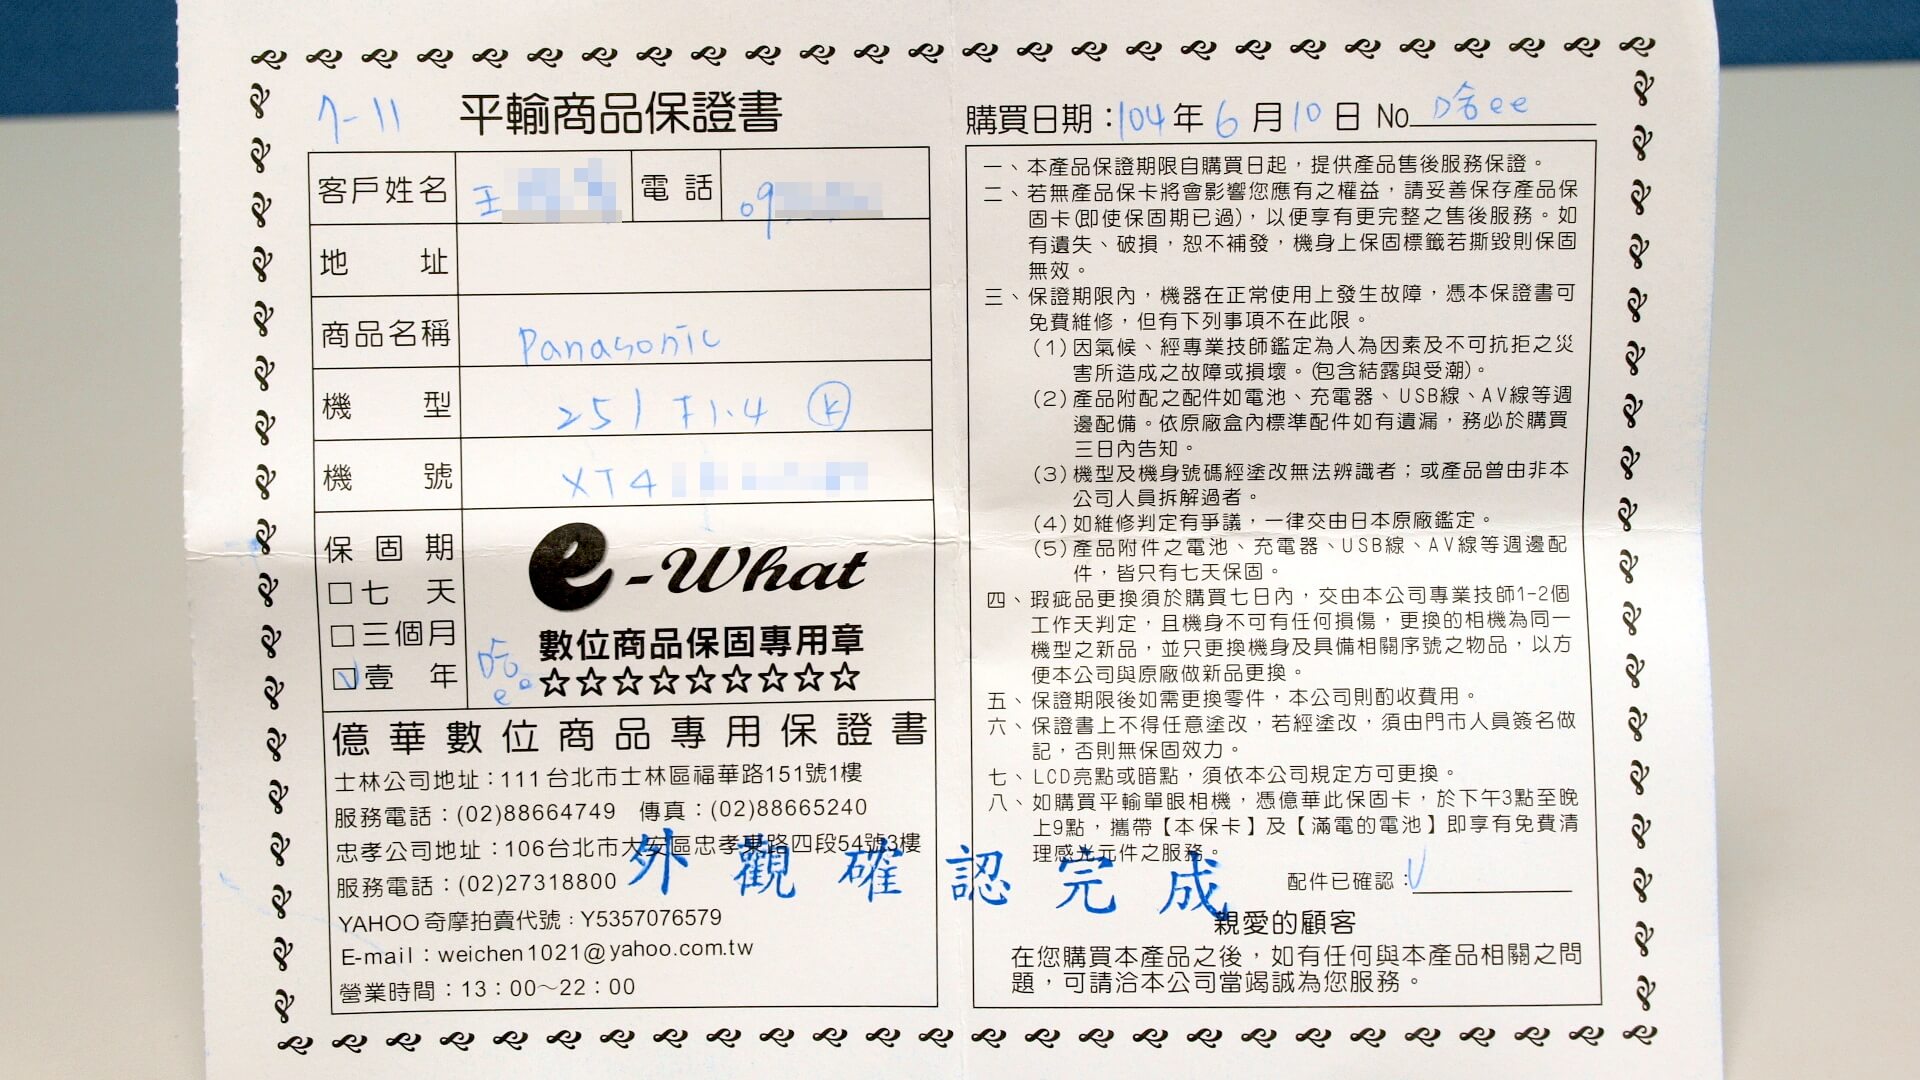 7-11 平輸商品保證書
客戶姓名 王 電話 09
地址
商品名稱 Panasonic
機型 251 F1.4 K
機號 XT4
保固期
□七天
□三個月
☑壹年
e-What
數位商品保固專用章
☆☆☆☆☆☆☆☆☆
億華數位商品專用保證書
士林公司地址：111台北市士林區福華路151號1樓
服務電話：(02)88664749 傳真：(02)88665240
忠孝公司地址：106台北市大安區忠孝東路四段54號3樓
服務電話：(02)27318800
YAHOO奇摩拍賣代號：Y5357076579
E-mail：weichen1021@yahoo.com.tw
營業時間：13：00～22：00
外觀確認完成
購買日期：104年6月10日 No 哈ee
一、本產品保證期限自購買日起，提供產品售後服務保證。
二、若無產品保卡將會影響您應有之權益，請妥善保存產品保
固卡(即使保固期已過)，以便享有更完整之售後服務。如
有遺失、破損，恕不補發，機身上保固標籤若撕毀則保固
無效。
三、保證期限內，機器在正常使用上發生故障，憑本保證書可
免費維修，但有下列事項不在此限。
(1)因氣候、經專業技師鑑定為人為因素及不可抗拒之災
害所造成之故障或損壞。(包含結露與受潮)。
(2)產品附配之配件如電池、充電器、USB線、AV線等週
邊配備。依原廠盒內標準配件如有遺漏，務必於購買
三日內告知。
(3)機型及機身號碼經塗改無法辨識者；或產品曾由非本
公司人員拆解過者。
(4)如維修判定有爭議，一律交由日本原廠鑑定。
(5)產品附件之電池、充電器、USB線、AV線等週邊配
件，皆只有七天保固。
四、瑕疵品更換須於購買七日內，交由本公司專業技師1-2個
工作天判定，且機身不可有任何損傷，更換的相機為同一
機型之新品，並只更換機身及具備相關序號之物品，以方
便本公司與原廠做新品更換。
五、保證期限後如需更換零件，本公司則酌收費用。
六、保證書上不得任意塗改，若經塗改，須由門市人員簽名做
記，否則無保固效力。
七、LCD亮點或暗點，須依本公司規定方可更換。
八、如購買平輸單眼相機，憑億華此保固卡，於下午3點至晚
上9點，攜帶【本保卡】及【滿電的電池】即享有免費清
理感光元件之服務。
配件已確認：V
親愛的顧客
在您購買本產品之後，如有任何與本產品相關之問
題，可請洽本公司當竭誠為您服務。